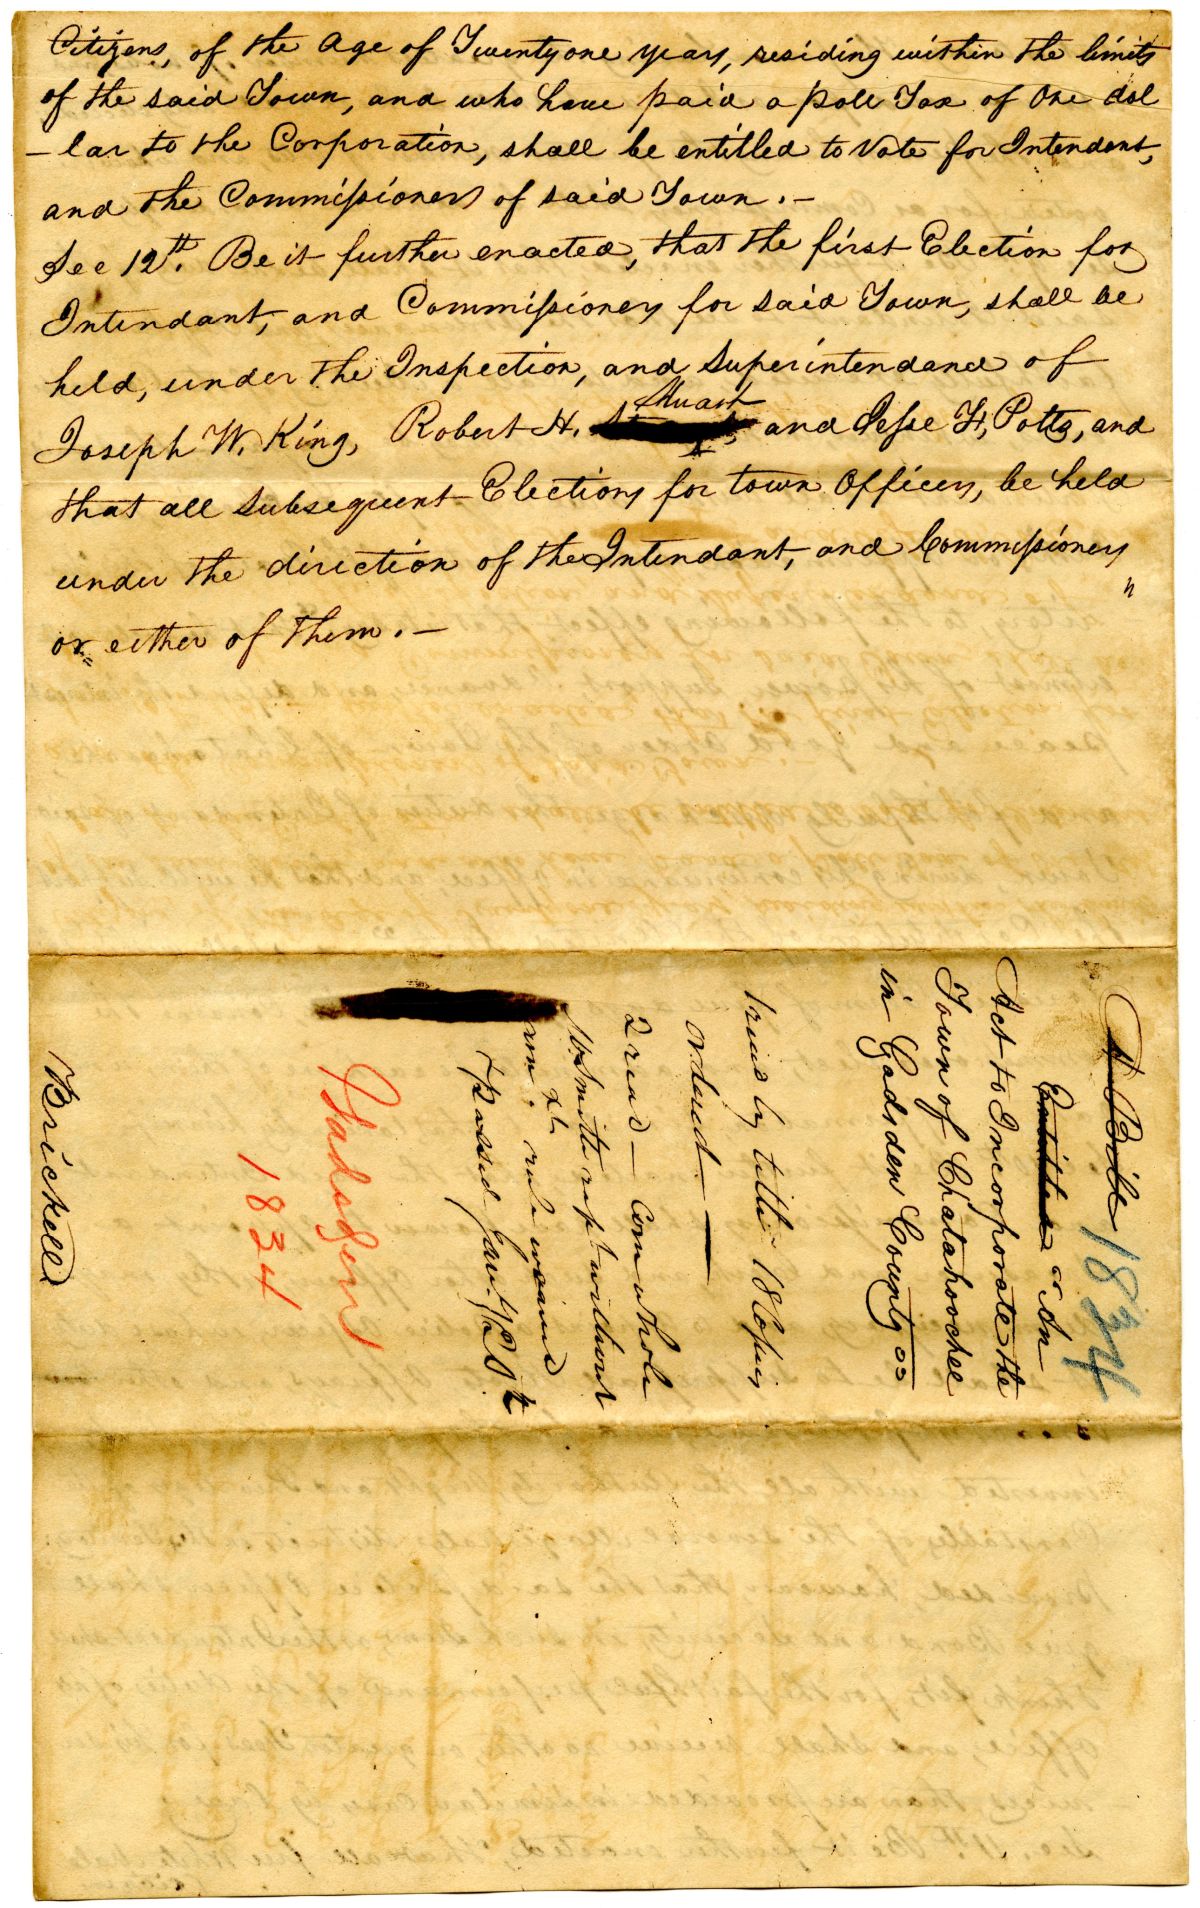 Citizens, of the Age of Twentyone years, residing within the limits
of the said Town, and who have paid a Poll Tax of One dol
-lar to the Corporation, shall be entitled to Vote for Intendant,
and the Commissioners of said Town.-
Sec 12th. Be it further enacted, that the first Election for
Intendant, and Commissioners for said Town, shall be
held, under the Inspection, and Superintendance of
Joseph W. King, Robert H. Stuart and Jesse H, Potts, and
that all subsequent Elections for town Officers, be held
under the direction of the Intendant, and Commissioners
or either of them.-
A Bill 1834
Entitled "An
Act to Incorporate the
Town of Chatahoochee
in Gadsden County"
1 read by title 18 Copies
ordered —
2 read — Com whole
Mr Smith rept without
rule waived
Passed Jany
Gadsden
1834
Brickell